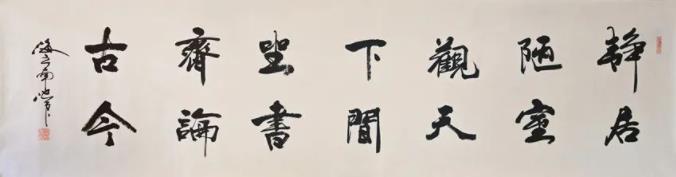 静居
陋室
觀天
下閒
坐書
齋論
古今